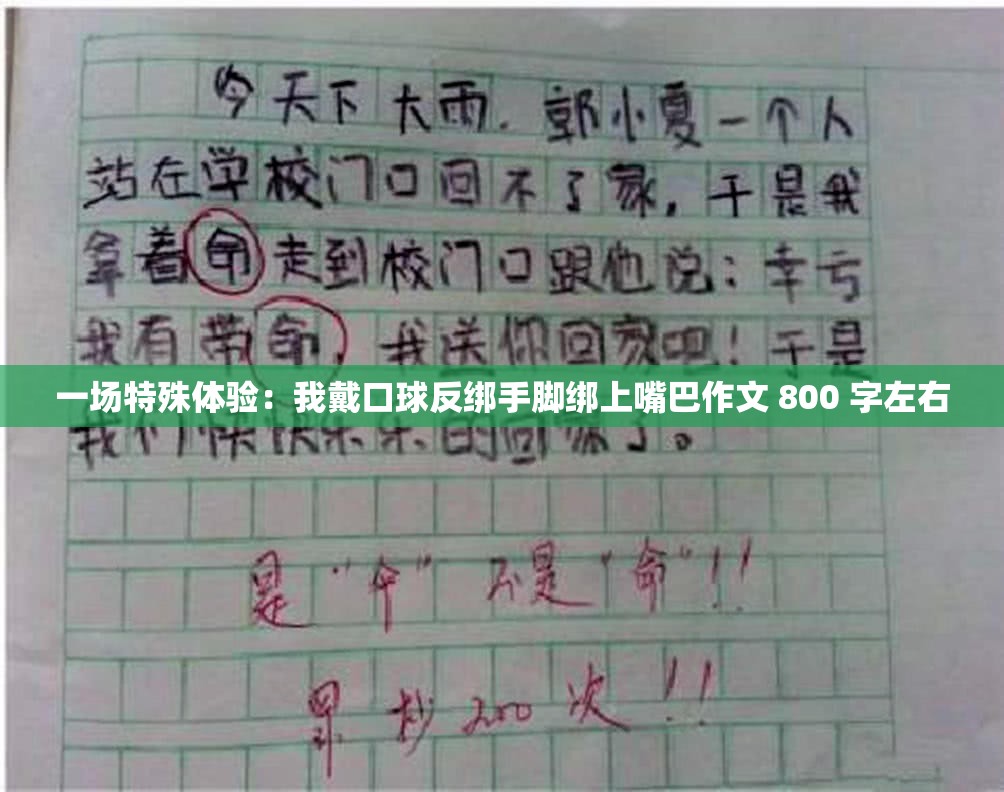 今天下大雨.郭小夏一个人
站在学校门口回不了家,于是我
拿着命走到校门口跟他说:幸亏
我有带命,我送你回家吧!于是
一场特殊体验：我戴口球反绑手脚绑上嘴巴作文 800 字左右
我们快快乐乐的回家了。
是“伞”不是“命”!!
罚抄200次!!